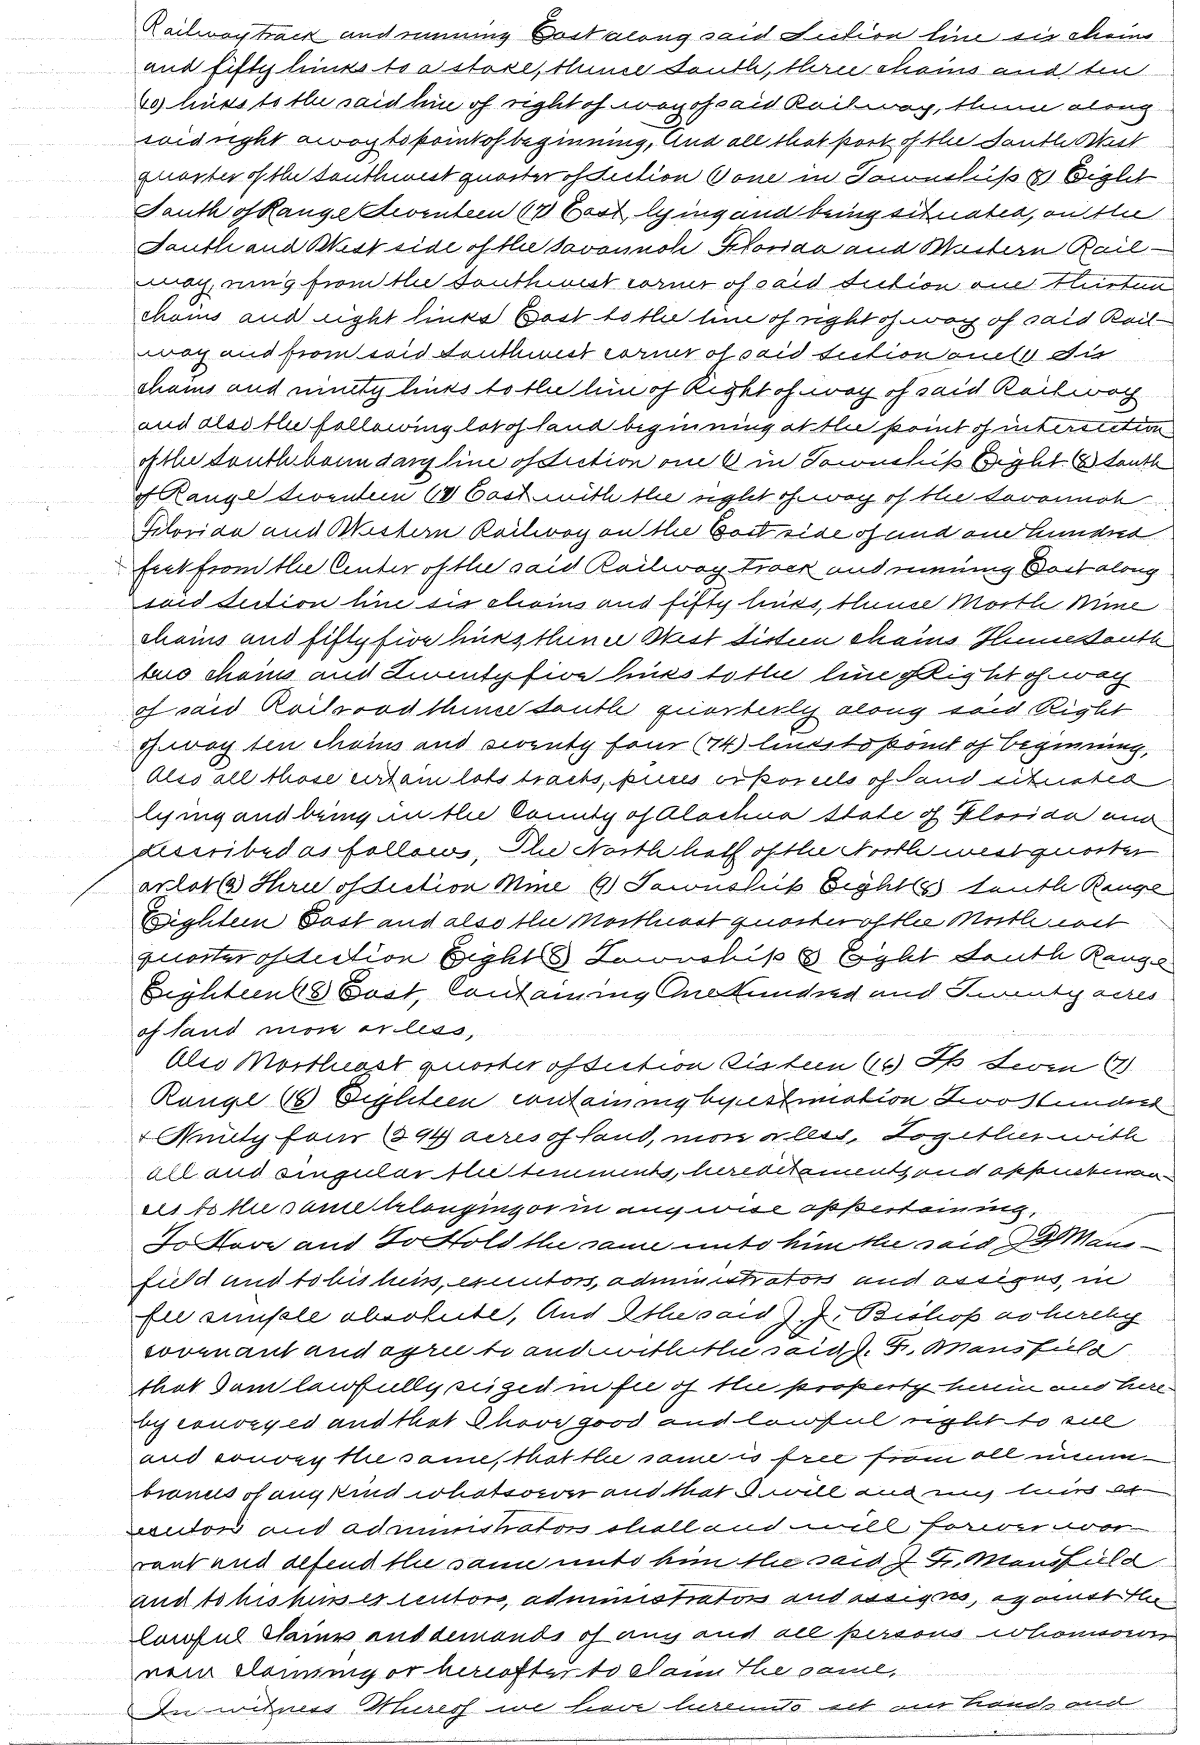 Railway track and running East along said Section line six chains
and fifty links to a stake, thence South, three chains and ten
(10) links to the said line of right of way of said Railway, thence along
said right away to point of beginning, And all that part of the South West
quarter of the Southwest quarter of Section (1) one in Township (8) Eight
South of Range Seventeen (17) East, lying and being situated, on the
South and West side of the Savannah Florida and Western Rail-
way, run'g from the Southwest corner of said Section one thirteen
chains and eight links East to the line of right of way of said Rail-
way and from said Southwest corner of said Section one (1) Six
chains and ninety links to the line of Right of way of said Railway
and also the following lot of land beginning at the point of intersection
of the South boundary line of Section one (1) in Township Eight (8) South
of Range Seventeen (17) East with the right of way of the Savannah
Florida and Western Railway on the East side of and one hundred
feet from the Center of the said Railway track and running East along
said Section line six chains and fifty links, thence North Nine
chains and fifty five links, thence West Sixteen chains Thence South
two chains and Twenty five links to the line of Right of way
of said Railroad thence South quarterly along said Right
of way ten chains and seventy four (74) links to point of beginning,
Also all those certain lots tracts, pieces or parcels of land situated
lying and being in the County of Alachua State of Florida and
described as follows, The North half of the North west quarter
or lot (3) Three of Section Nine (9) Township Eight (8) South Range
Eighteen East and also the Northeast quarter of the North east
quarter of Section Eight (8) Township (8) Eight South Range
Eighteen (18) East, Containing One Hundred and Twenty acres
of land more or less,
Also Northeast quarter of Section Sixteen (16) Tp Seven (7)
Range (18) Eighteen containing by estimation Two Hundred
+ Ninety four (294) acres of land, more or less, Together with
all and singular the tenements, hereditaments, and appurtenan-
ces to the same belonging or in anywise appertaining,
To Have and To Hold the same unto him the said J F Mans-
field and to his heirs, executors, administrators and assigns, in
fee simple absolute, And I the said J. J. Bishop do hereby
covenant and agree to and with the said J. F. Mansfield
that I am lawfully seized in fee of the property herein and here-
by conveyed and that I have good and lawful right to sell
and convey the same, that the same is free from all incum-
brances of any kind whatsoever and that I will and my heirs ex
ecutors and administrators shall and will forever war-
rant and defend the same unto him the said J F. Mansfield
and to his heirs executors, administrators and assigns, against the
lawful claims and demands of any and all persons whomsoever
now claiming or hereafter to claim the same,
In witness Whereof we have hereunto set our hands and